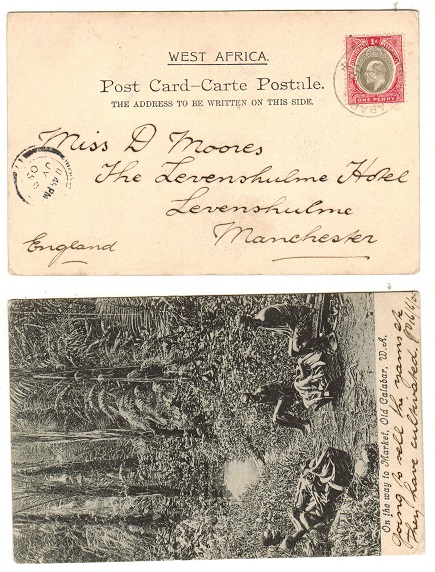 WEST AFRICA.
Post Card–Carte Postale.
THE ADDRESS TO BE WRITTEN ON THIS SIDE.
1d
ONE PENNY
Miss D Moores
The Levenshulme Hotel
Levenshulme
Manchester
England
PM
JY
05
On the way to Market, Old Calabar, W. A.
Going to sell the yams etc
they have cultivated.